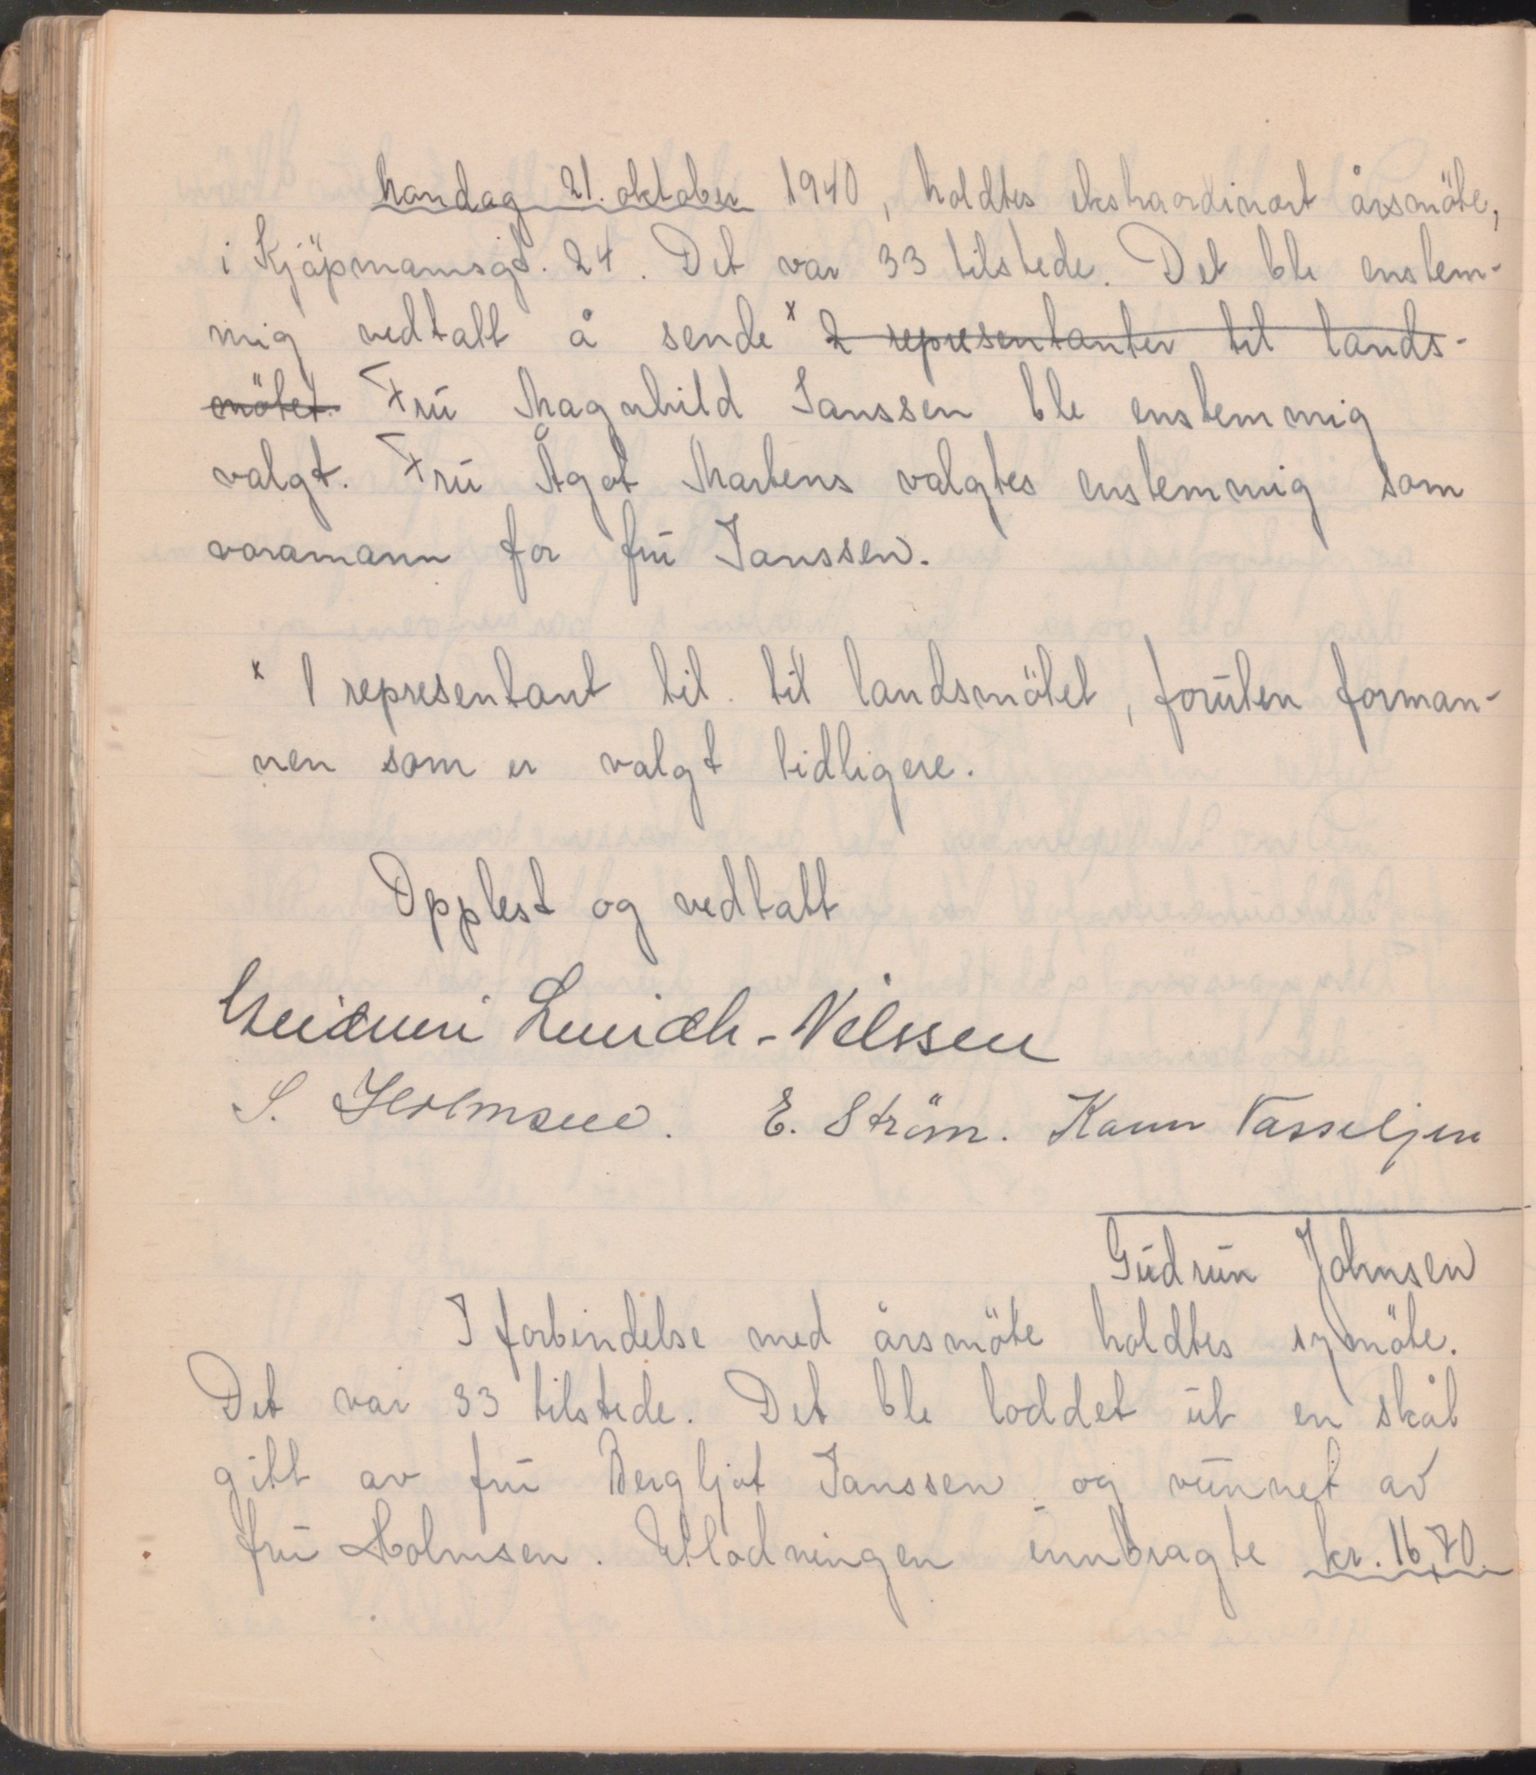 Mandag 21. oktober 1940, holdtes ekstraordinært årsmöte,
i Kjöpmannsgt. 24. Det var 33 tilstede. Det ble enstem-
mig vedtatt å sende x 2 representanter til lands-
mötet. Fru Magnhild Janssen ble enstemmig
valgt. Fru Ågot Martens valgtes enstemmig som
varamann for fru Janssen.
x 1 representant til. til landsmötet, foruten forman-
nen som er valgt tidligere.
Opplest og vedtatt
Lundh-Nilssen
S. Holmsen. E. Ström. Karin Vasseljen
Gudrun Johnsen
I forbindelse med årsmöte holdtes symöte.
Det var 33 tilstede. Det ble loddet ut en skål
gitt av fru Bergljot Janssen og vunnet av
fru Holmsen. Utlodningen innbragte kr. 16,70.